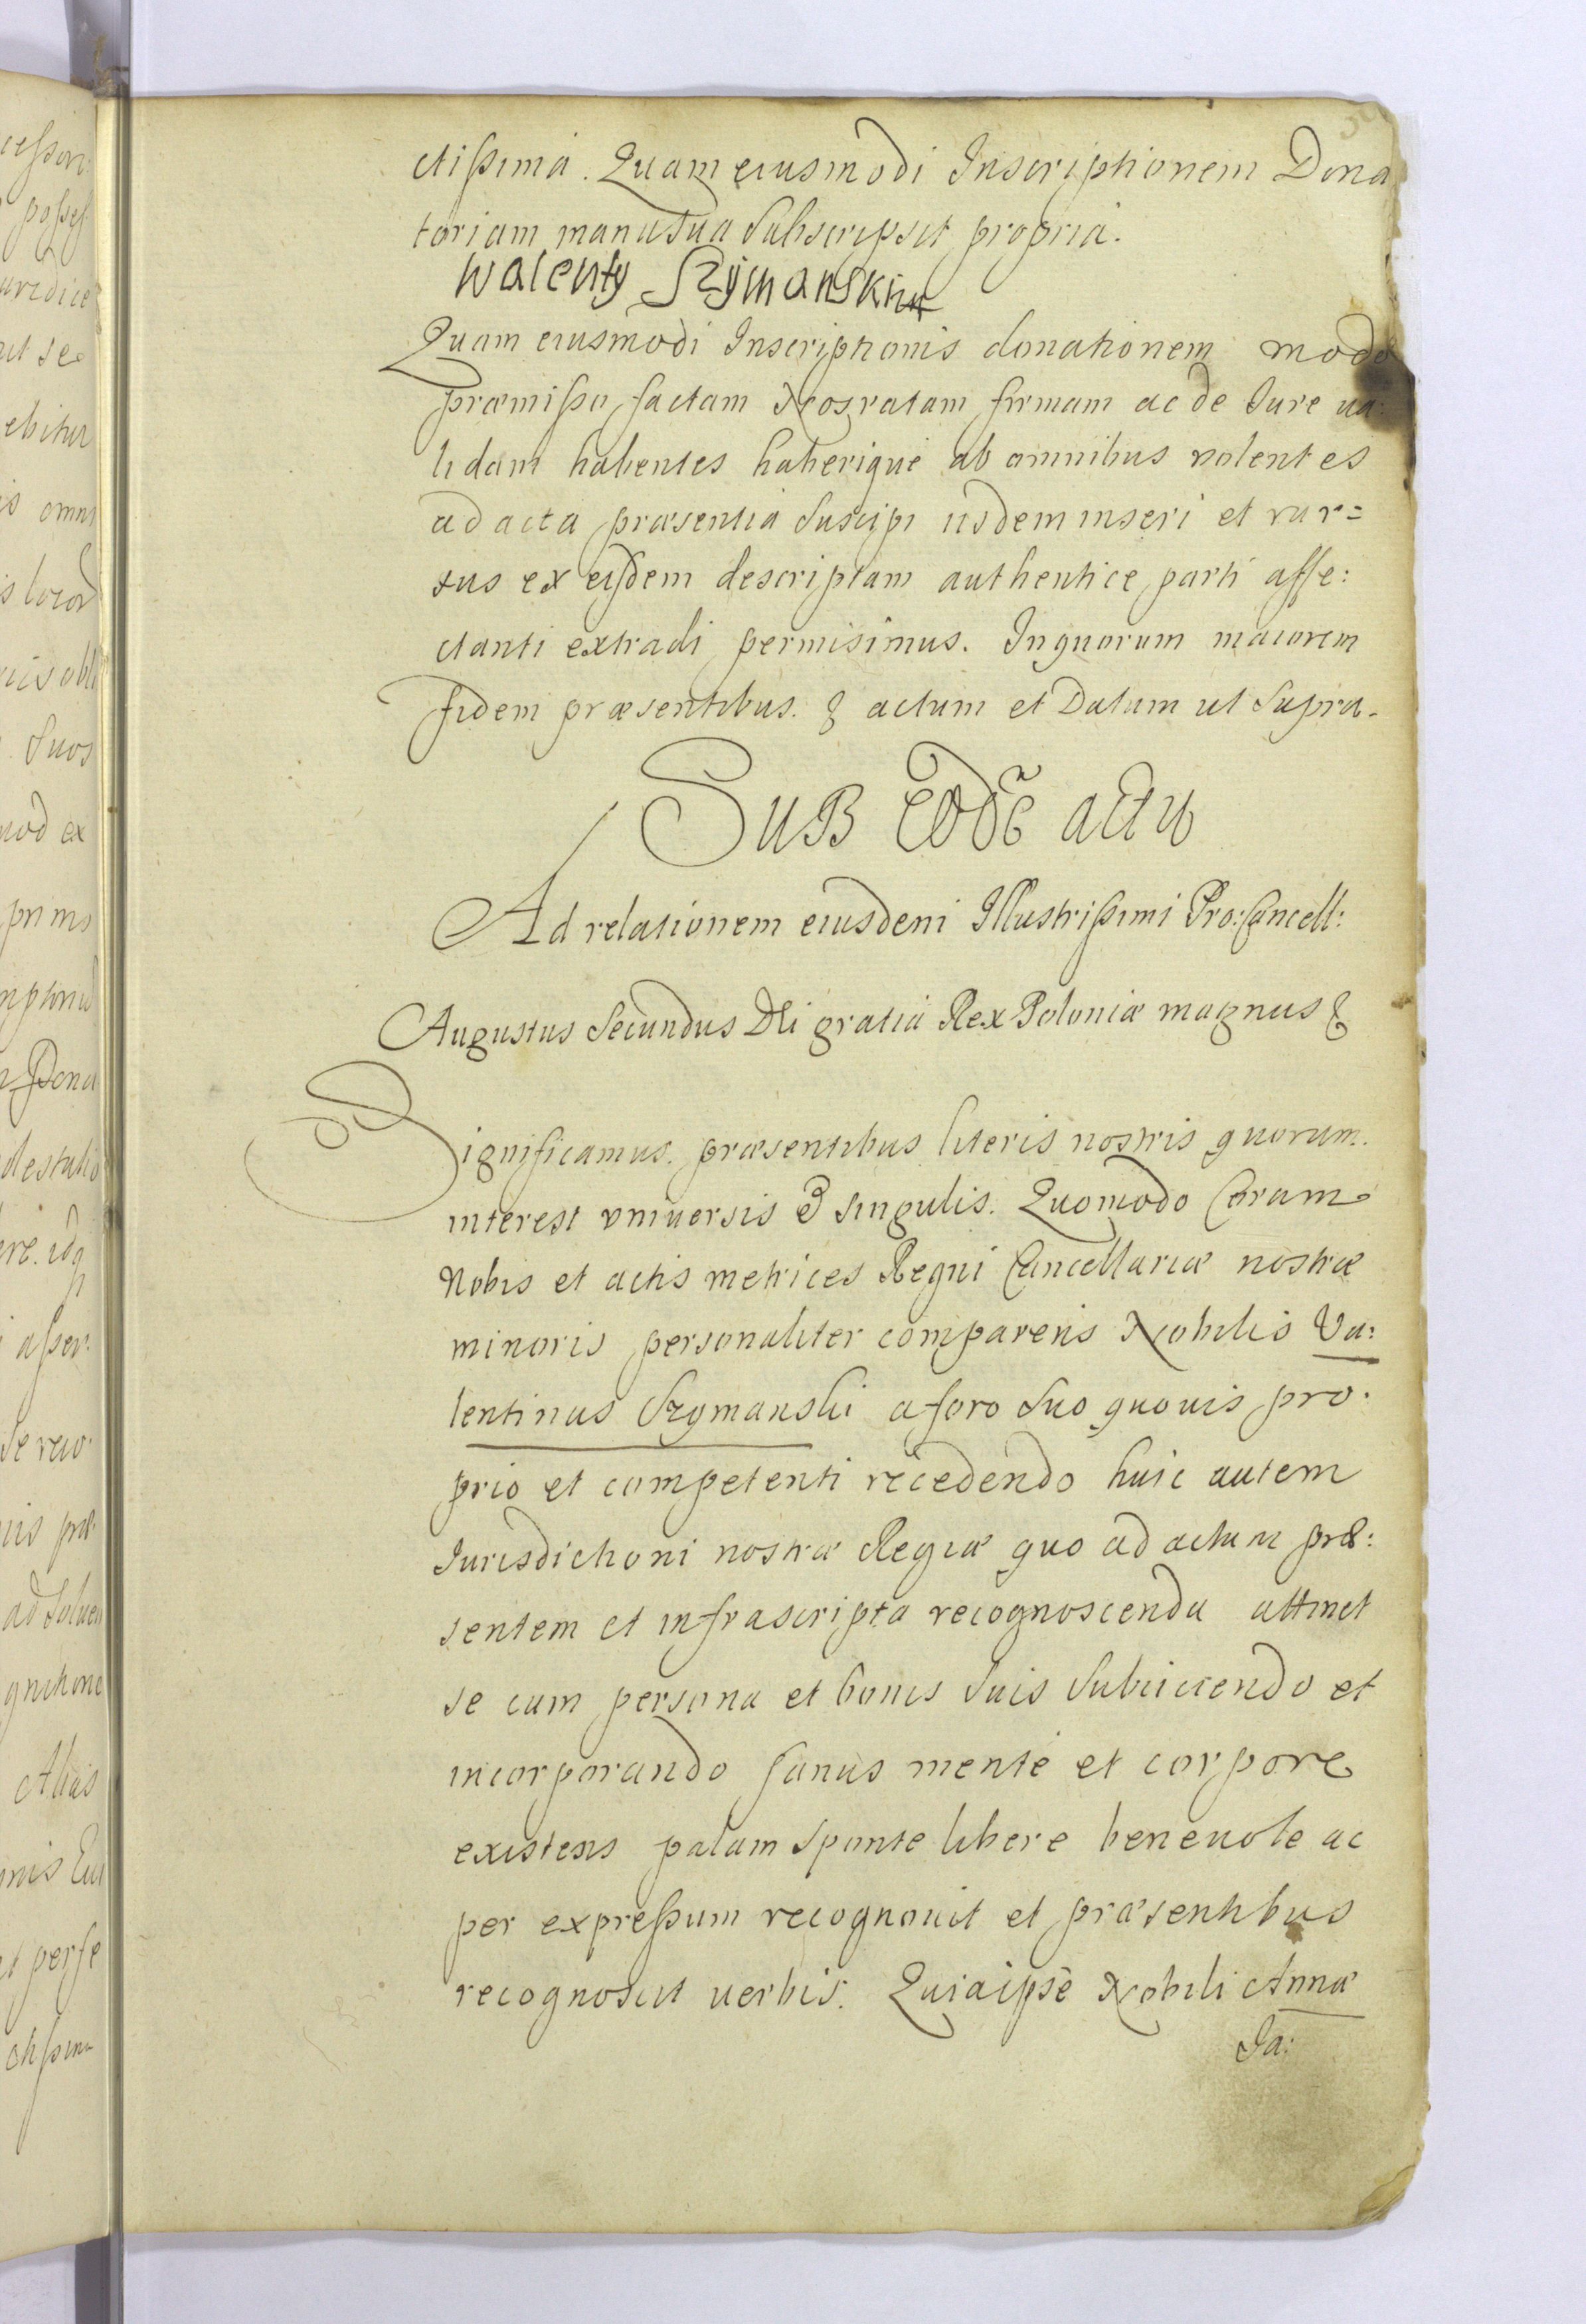 ctissima. Quam eiusmodi Inscriptionem Dona
toriam manu sua subscripsit propria.
Walenty Szymanski
Quam eiusmodi Inscriptionis donationem modo
præmisso factam Nos ratam firmam ac de Iure va:
lidam habentes haberique ab omnibus volentes
ad acta præsentia suscipi iisdem inseri et rur=
sus ex eisdem descriptam authentice parti affe:
ctanti extradi permisimus. In quorum maiorem
fidem præsentibus. & actum et Datum ut supra.
Sub Eodẽ actu
Ad relationem eiusdem Illustrissimi Pro:Cancell:
Augustus Secundus Dei gratia Rex Poloniæ magnus &
Significamus. præsentibus literis nostris quorum.
interest vniuersis & singulis. Quomodo Coram
Nobis et actis metrices Regni Cancellariæ nostræ
minoris personaliter comparens Nobilis Va:
lentinus Szymanski a foro suo quouis pro.
prio et competenti recedendo huic autem
Iurisdictioni nostræ Regiæ quo ad actum præ:
sentem et infrascripta recognoscenda attinet
se cum persona et bonis suis subiiciendo et
incorporando sanus mente et corpore
existens palam sponte libere beneuole ac
per expressum recognouit et præsentibus
recognoscit verbis. Quia ipse Nobili Annæ
Ia: